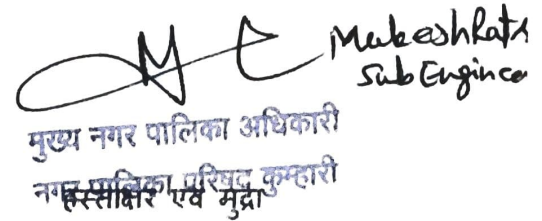 Mukesh Rath
Sub Enginee
मुख्य नगर पालिका अधिकारी
नगर पालिका परिषद कुम्हारी
हस्ताक्षर एवं मुद्रा